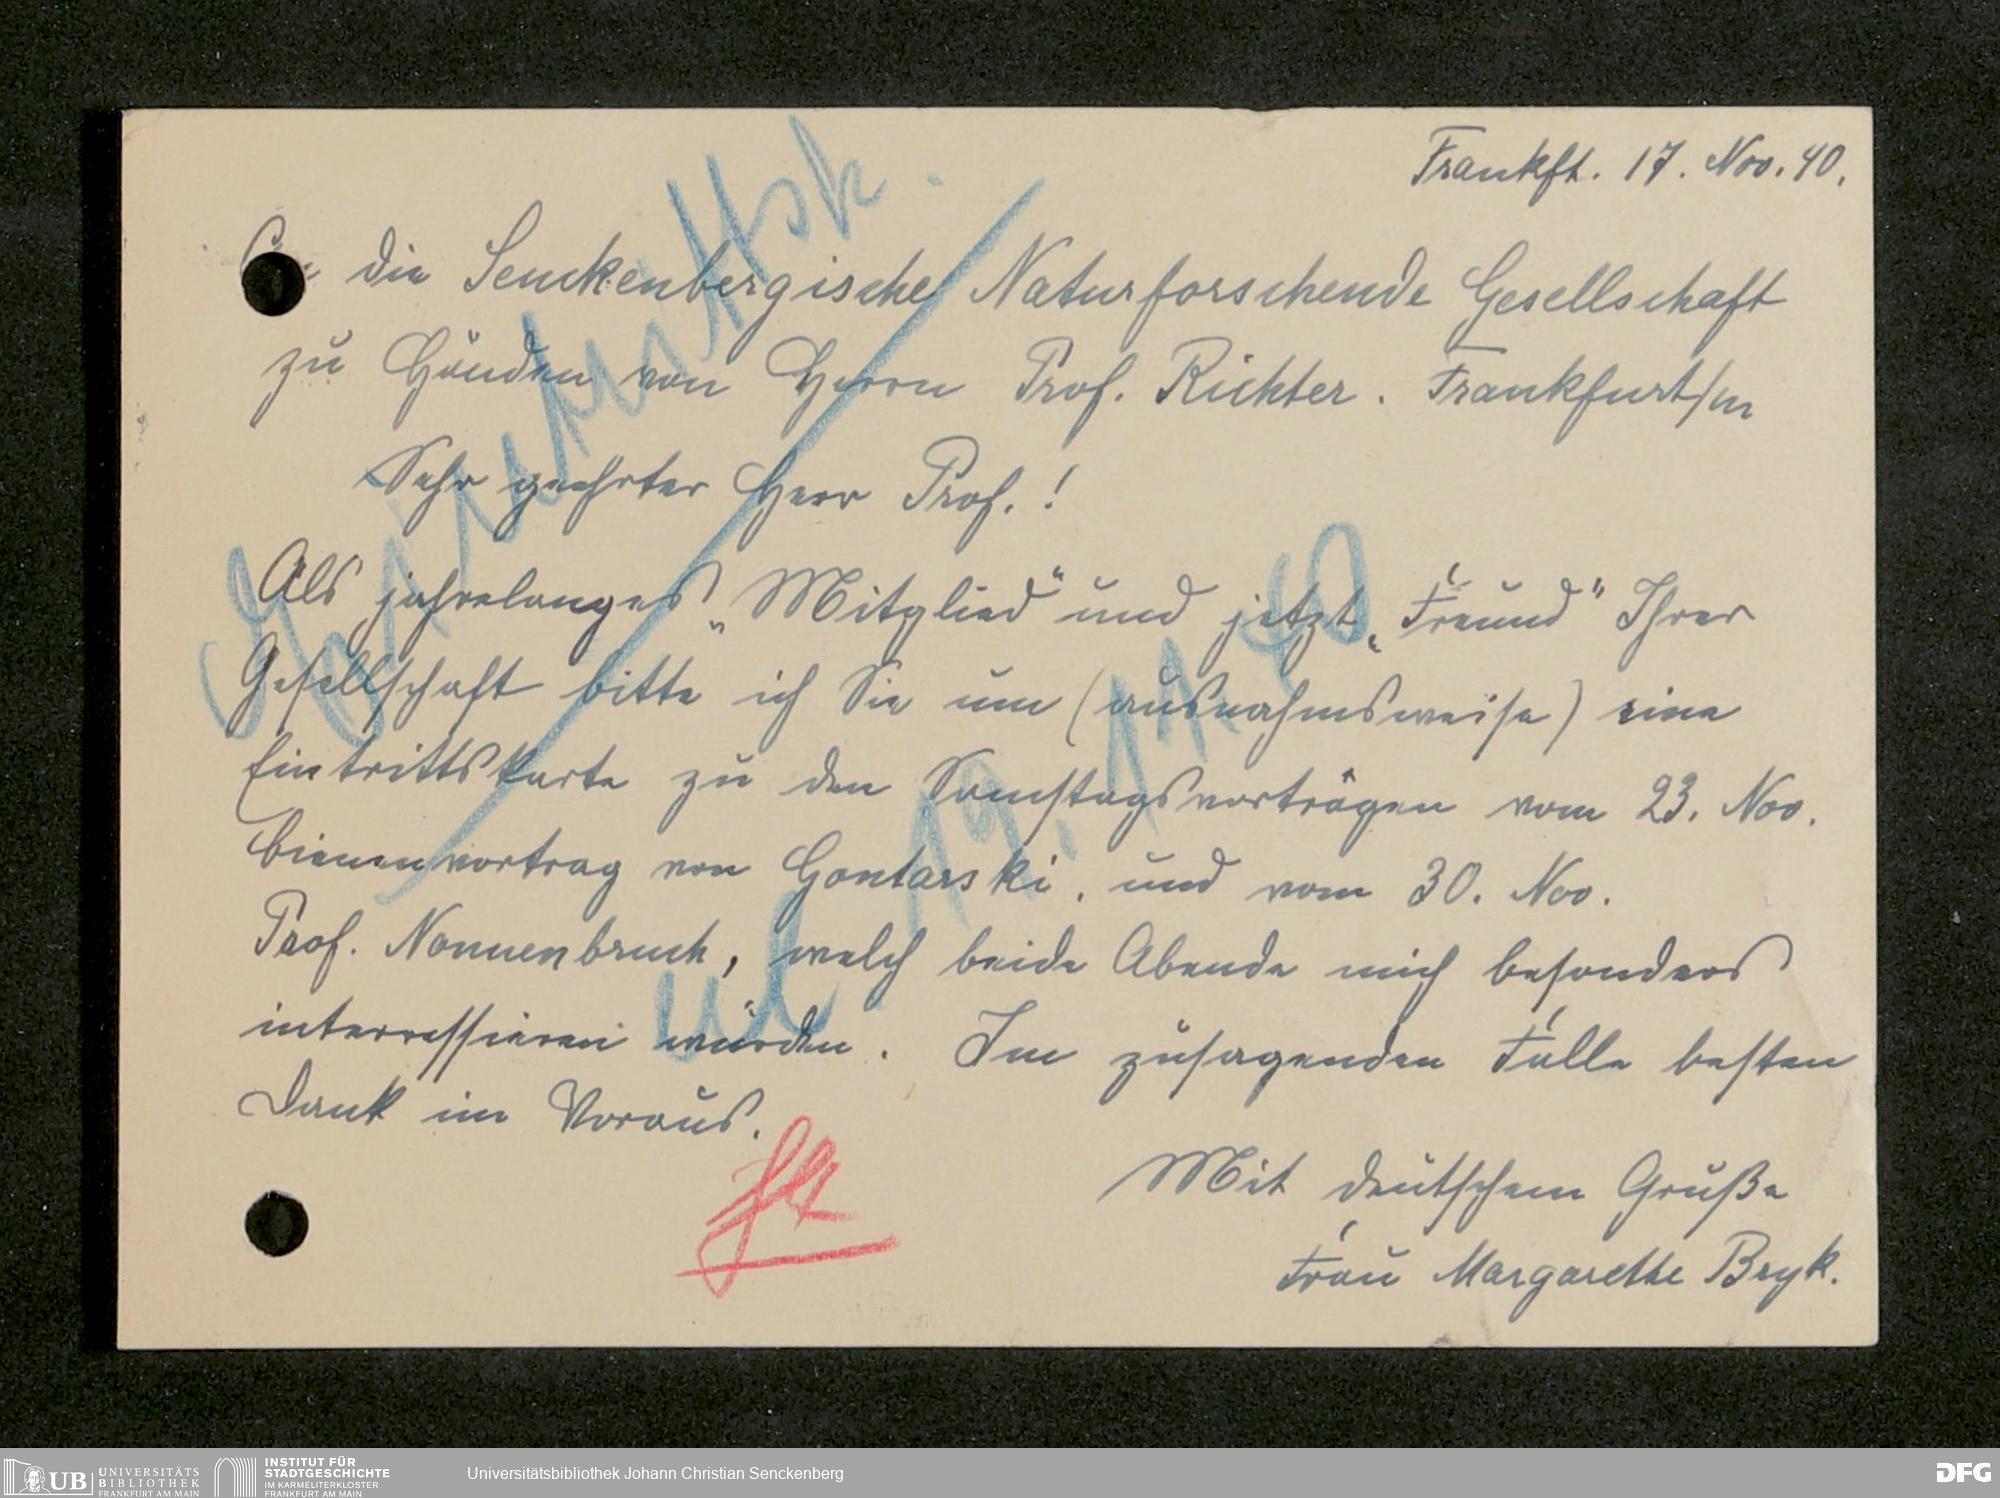 Frankft. 17. Nov. 40.
An die Senckenbergische Naturforschende Gesellschaft
zu Händen von Herrn Prof. Richter. Frankfurt/m
Sehr geehrter Herr Prof.!
Als jahrelanges „Mitglied“ und jetzt „Freund“ Ihrer
Gesellschaft bitte ich Sie um (ausnahmsweise) eine
Eintrittskarte zu den Samstagsvorträgen vom 23. Nov.
Bienenvortrag von Gontarski, und vom 30. Nov.
Prof. Nonnenbruch, welch beide Abende mich besonders
interressieren würden. Im zusagenden Falle besten
Dank im Voraus.
Mit deutschem Gruße
Frau Margarethe Bryk.
19.11.40
UB UNIVERSITÄTS
BIBLIOTHEK
FRANKFURT AM MAIN
INSTITUT FÜR
STADTGESCHICHTE
IM KARMELITERKLOSTER
FRANKFURT AM MAIN
Universitätsbibliothek Johann Christian Senckenberg
DFG